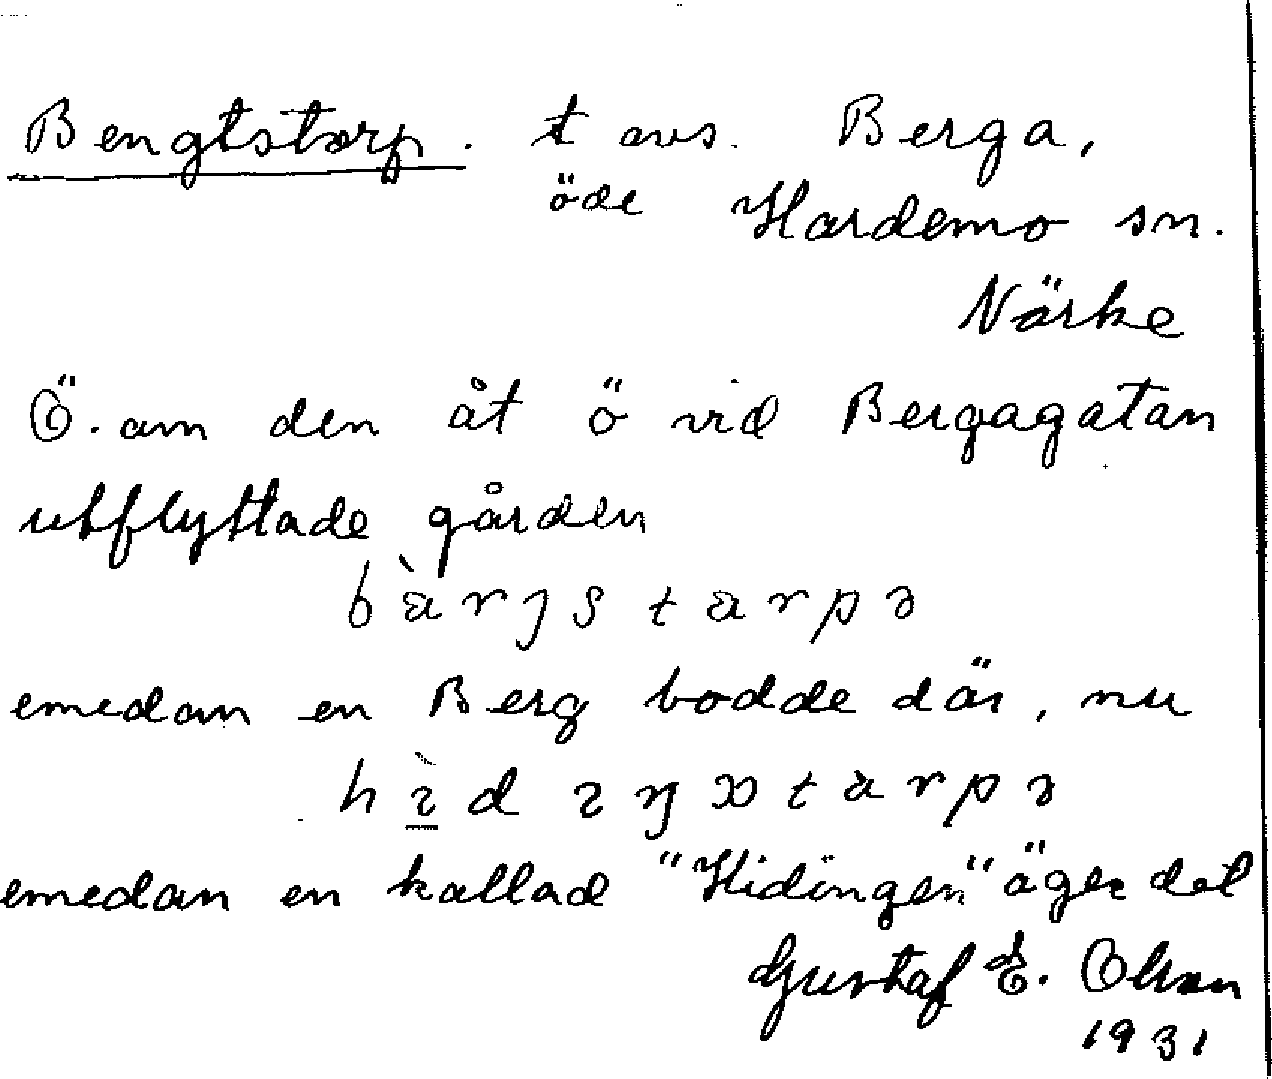 Bengtstorp. t avs. Berga,
öde Hardemo sn.
Närke
Ö. om den åt ö vid Bergagatan
utflyttade gården
bàrjstarpə
emedan en Berg bodde där, nu
emedan en kallad "Hidingen" äger det
Gustaf E. Olson
1931